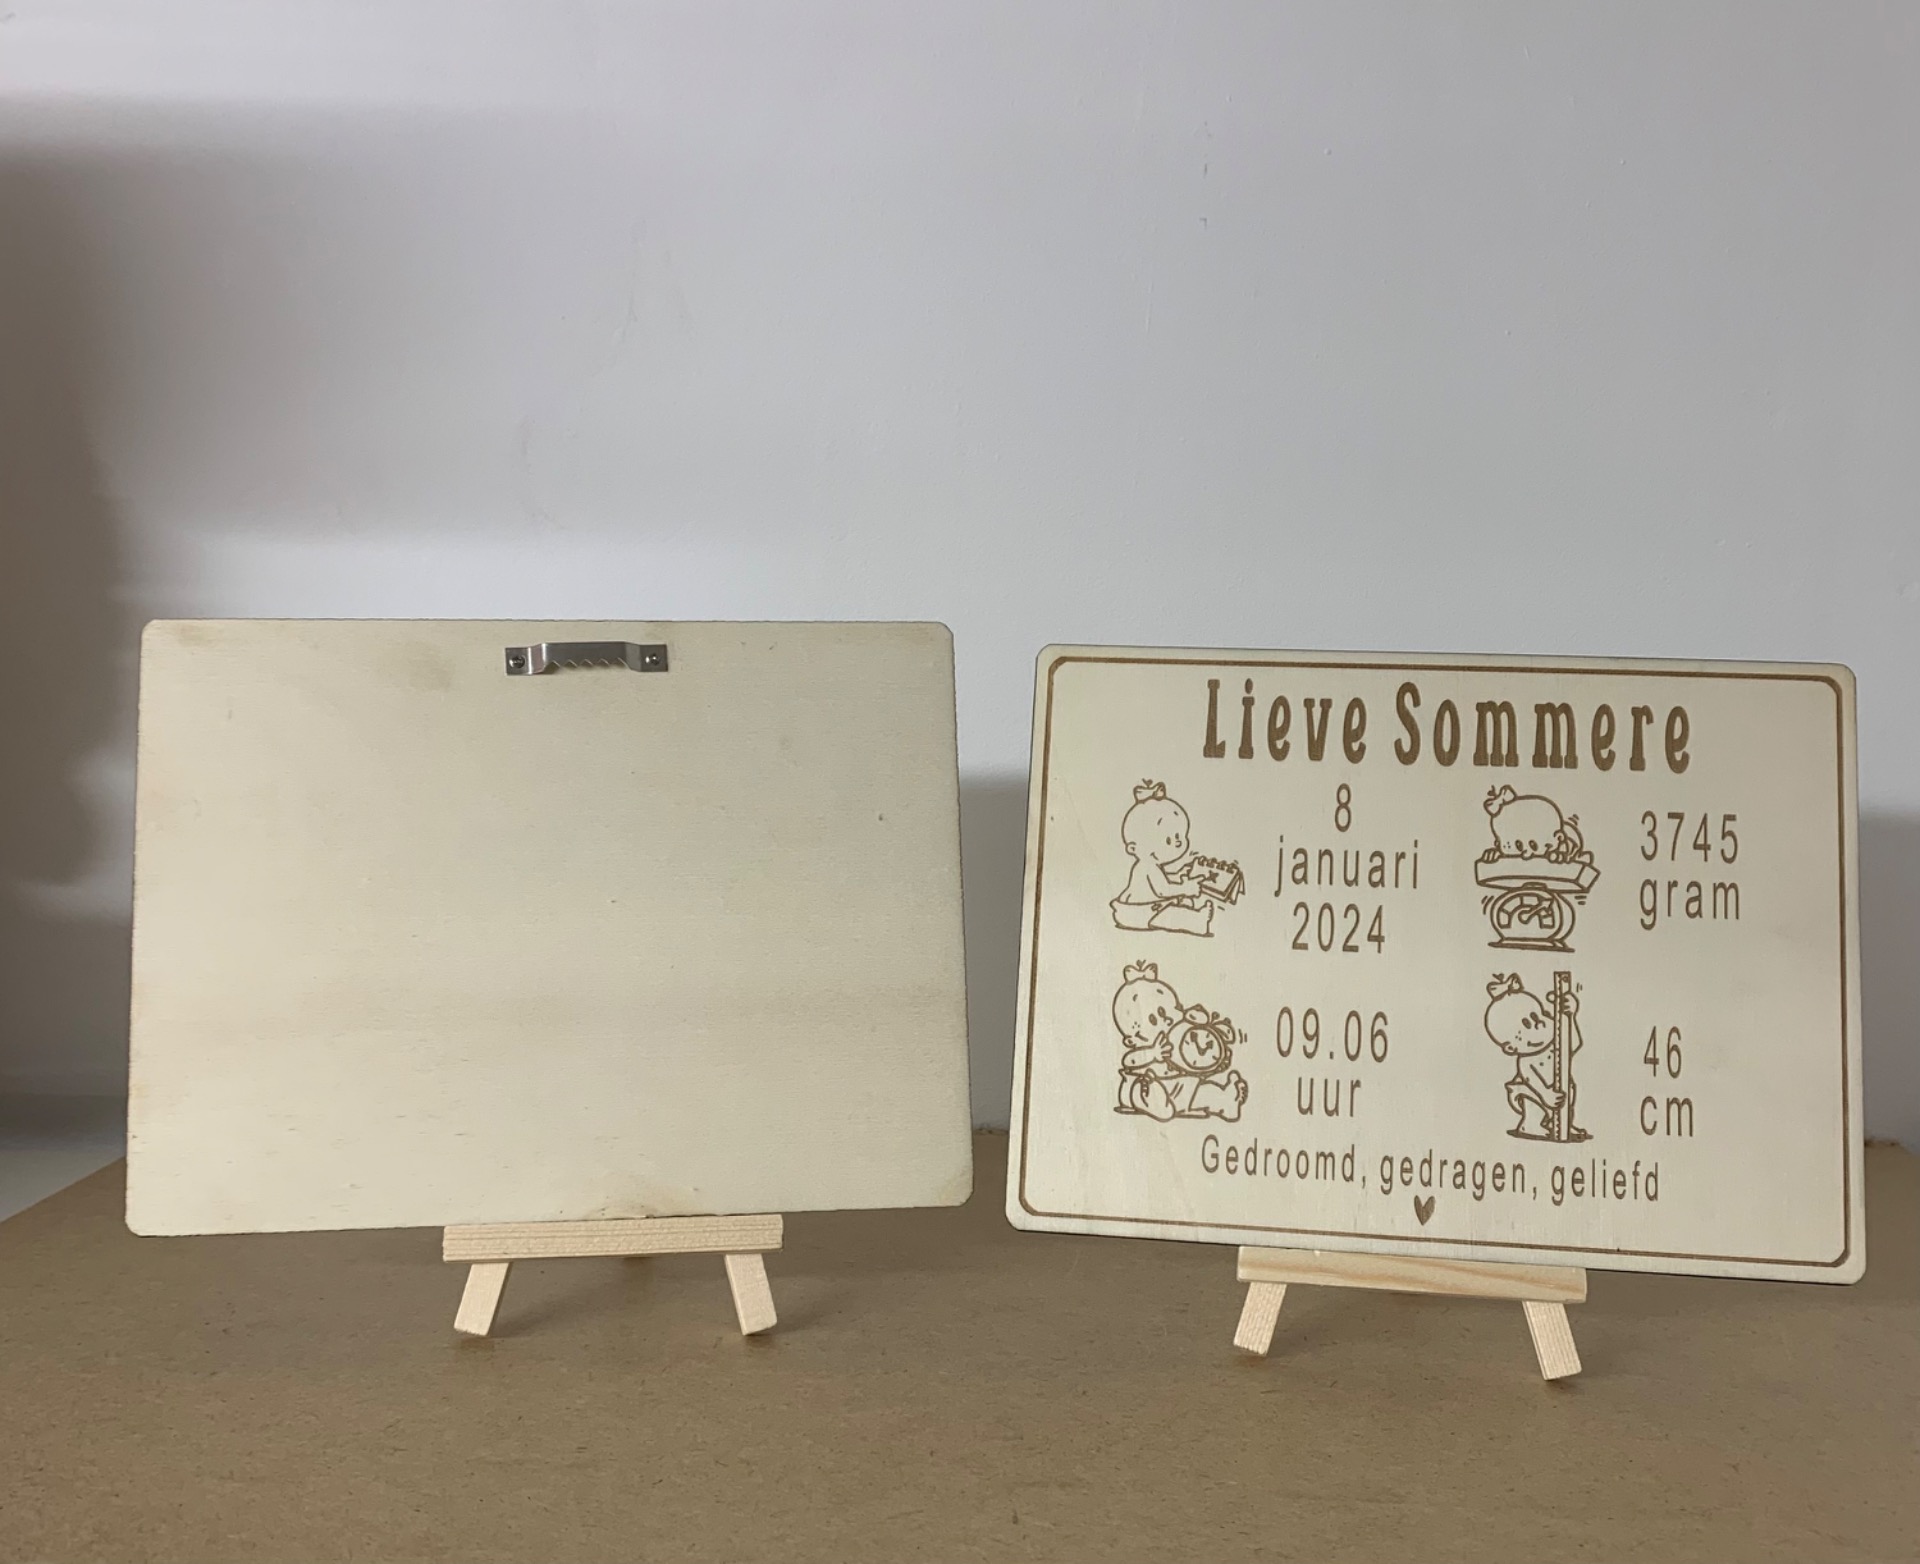 Lieve Sommere
8
januari
2024
3745
gram
09.06
uur
46
cm
Gedroomd, gedragen, geliefd